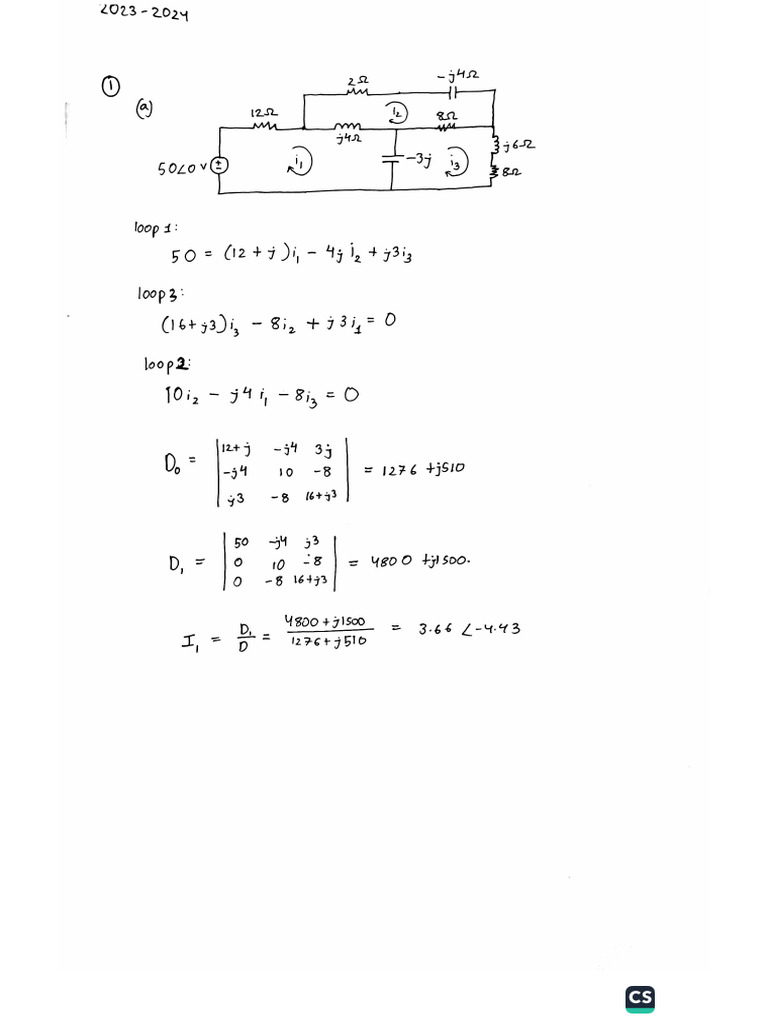 2023-2024
①
(a)
2Ω
-j4Ω
12Ω
i₂
8Ω
j4Ω
j6Ω
50∠0 v
i₁
-3j
i₃
8Ω
loop 1:
50 = (12 + j) i₁ - 4j i₂ + j3i₃
loop 3:
(16+j3) i₃ - 8i₂ + j3i₁ = 0
loop 2:
10i₂ - j4 i₁ - 8i₃ = 0
D₀ = | 12+j -j4 3j |
| -j4 10 -8 | = 1276 + j510
| j3 -8 16+j3 |
D₁ = | 50 -j4 j3 |
| 0 10 -8 | = 4800 + j1500.
| 0 -8 16+j3 |
I₁ = D₁/D = (4800 + j1500)/(1276 + j510) = 3.66 ∠-4.43
CS